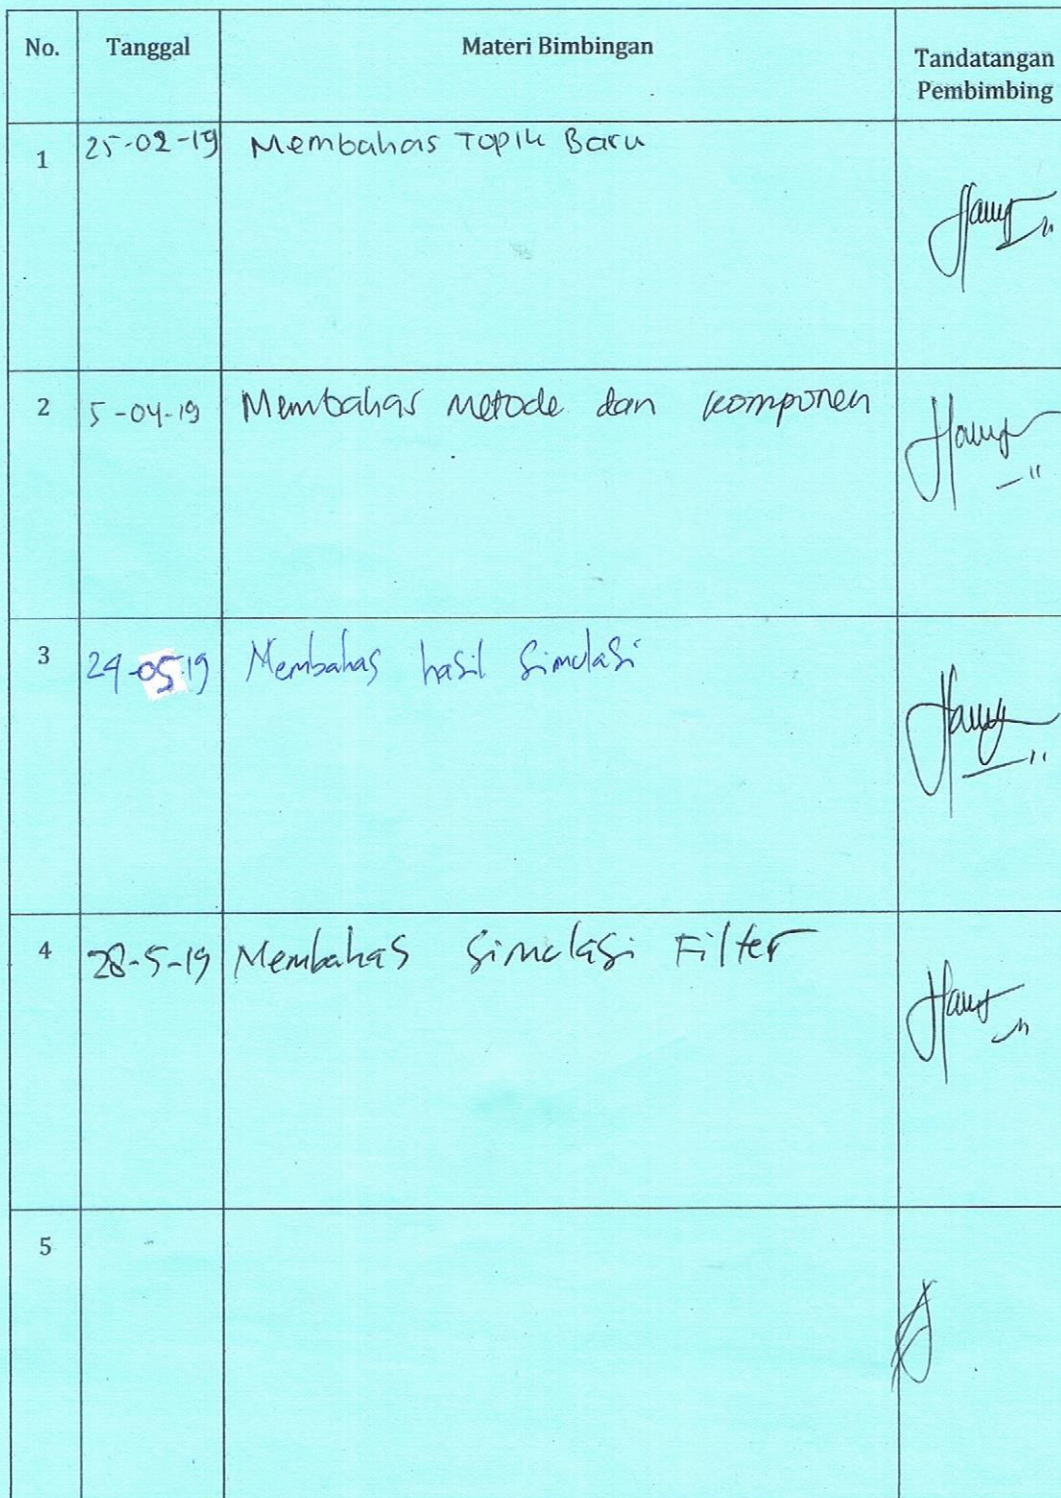 No. Tanggal Materi Bimbingan Tandatangan
Pembimbing
1 25-02-19 Membahas Topik Baru
2 5-04-19 Membahas Metode dan komponen
3 24-05-19 Membahas hasil Simulasi
4 28-5-19 Membahas Simulasi Filter
5